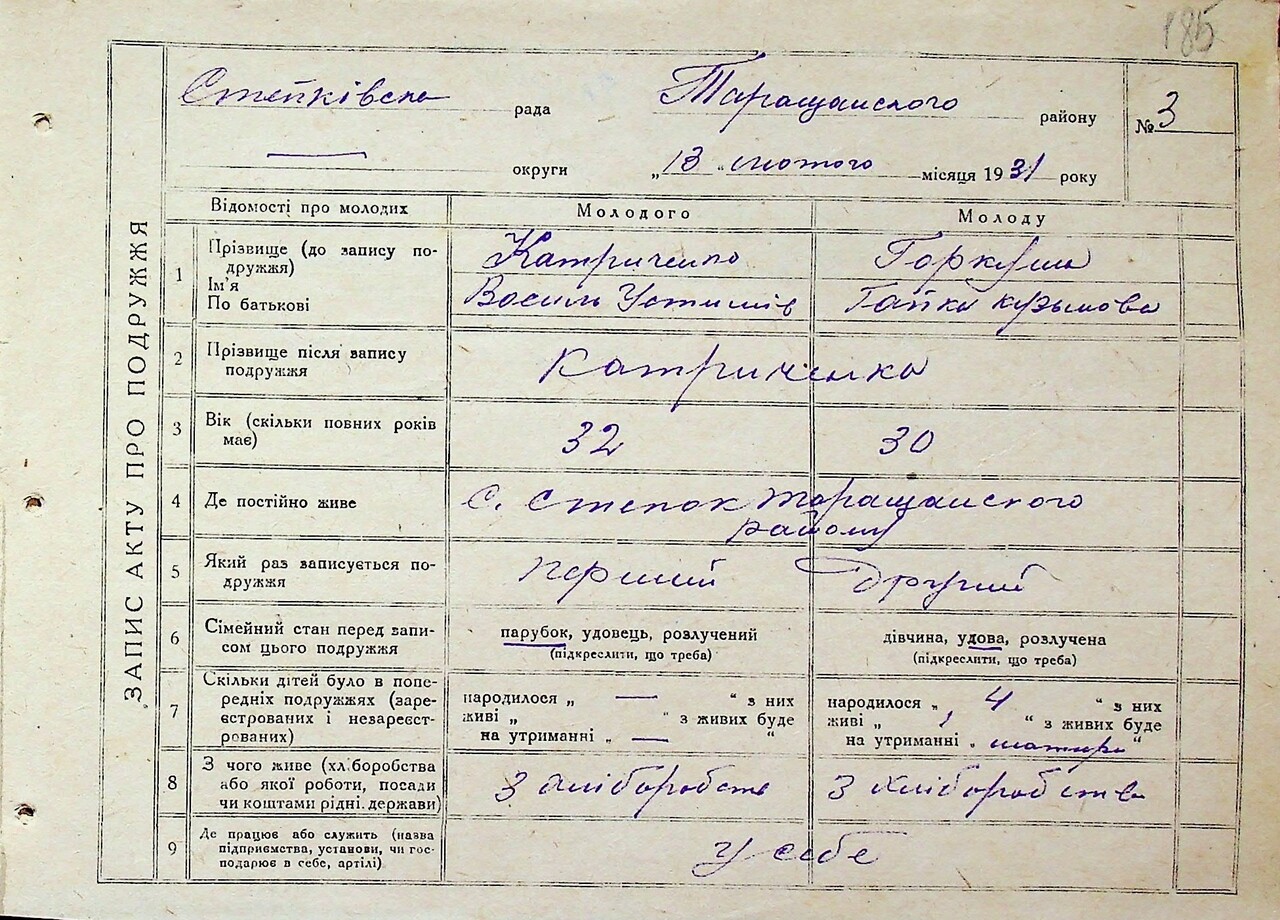 185
Степківська рада Таращанского району № 3
— округи „13“ лютого місяця 1931 року
ЗАПИС АКТУ ПРО ПОДРУЖЖЯ
Відомості про молодих Молодого Молоду
1 Прізвище (до запису подружжя) Катриченко Горкуша
Ім'я
По батькові Василь Устимів Гапка кузьмова
2 Прізвище після запису
подружжя Катриченко
3 Вік (скільки повних років
має) 32 30
4 Де постійно живе С. Степок Таращанского
району
5 Який раз записується по-
дружжя перший другий
6 Сімейний стан перед запи- парубок, удовець, розлучений дівчина, удова, розлучена
сом цього подружжя (підкреслити, що треба) (підкреслити, що треба)
7 Скільки дітей було в попе-
редніх подружжях (заре- народилося „ — “ з них народилося „ 4 “ з них
єстрованих і незареєст- живі „ “ з живих буде живі „ “ з живих буде
рованих) на утриманні „ — “ на утриманні „ “
8 З чого живе (хліборобства
або якої роботи, посади з хліборобств з хліборобства
чи коштами рідні, держави)
9 Де працює або служить (назва
підприємства, установи, чи гос- у себе
подарює в себе, артілі)